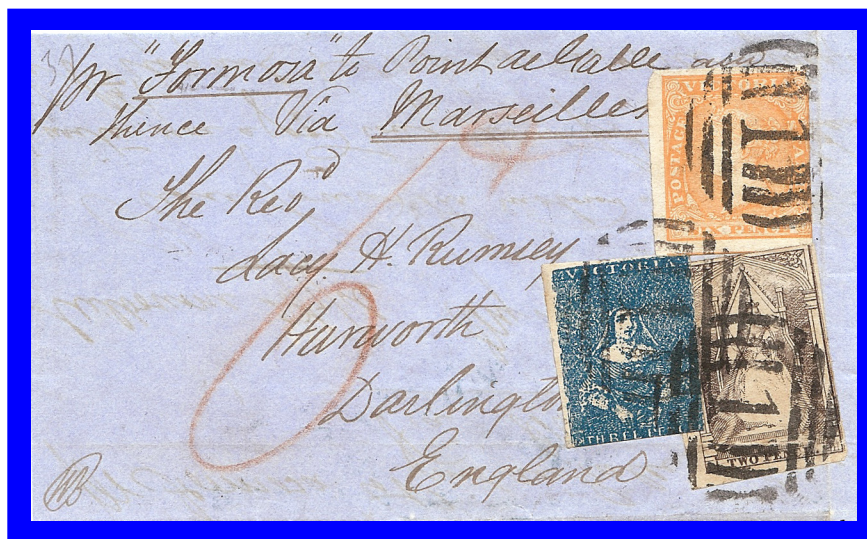 pr "Formosa" to Point de Galle and
thence Via Marseilles
The Revd
Lacy H. Rumsey
Hurworth
Darlington
England
POSTAGE VICTORIA
VICTORIA
THREE PENCE
TWO PENCE
1
1